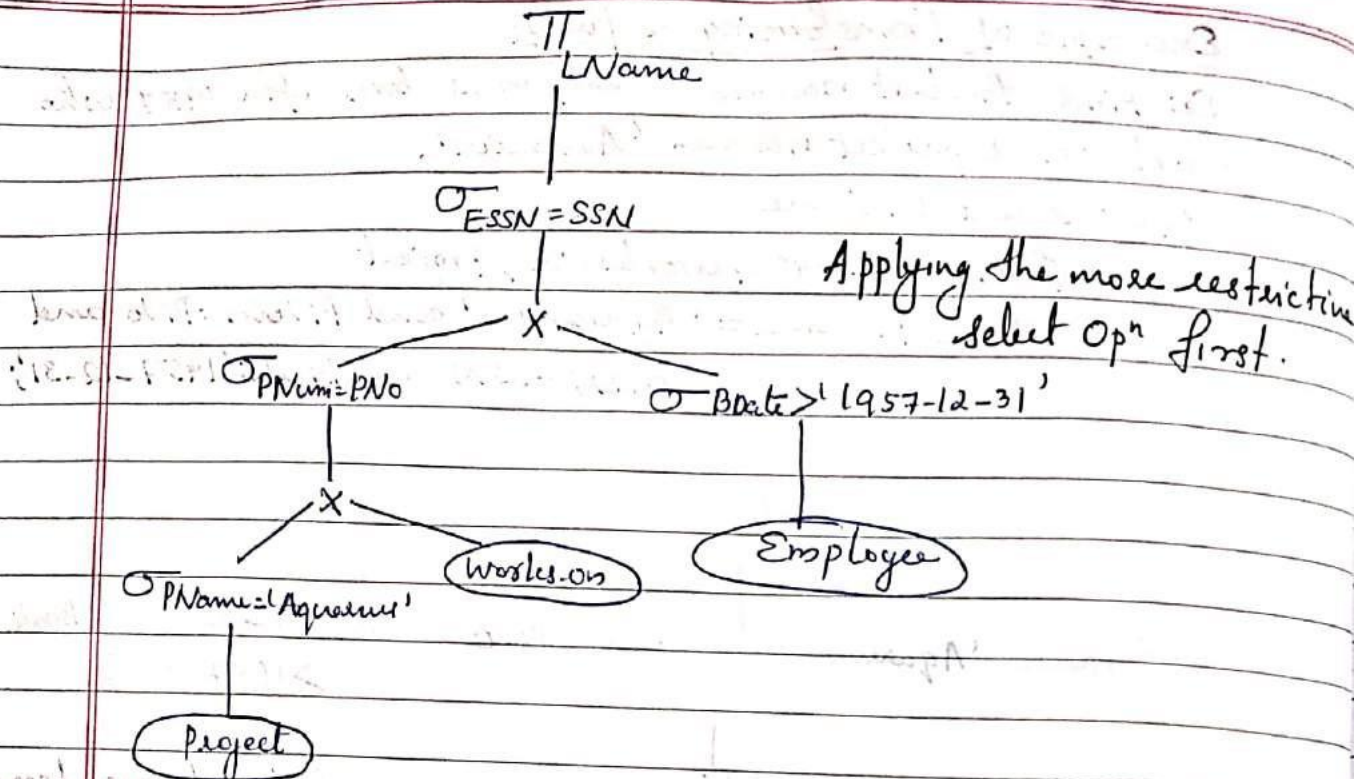 π LName
σ ESSN = SSN
Applying the more restrictive
select Opⁿ first.
X
σ PNum = PNo
σ BDate > '1957-12-31'
X
Works-on
Employee
σ PName = 'Aquarius'
Project